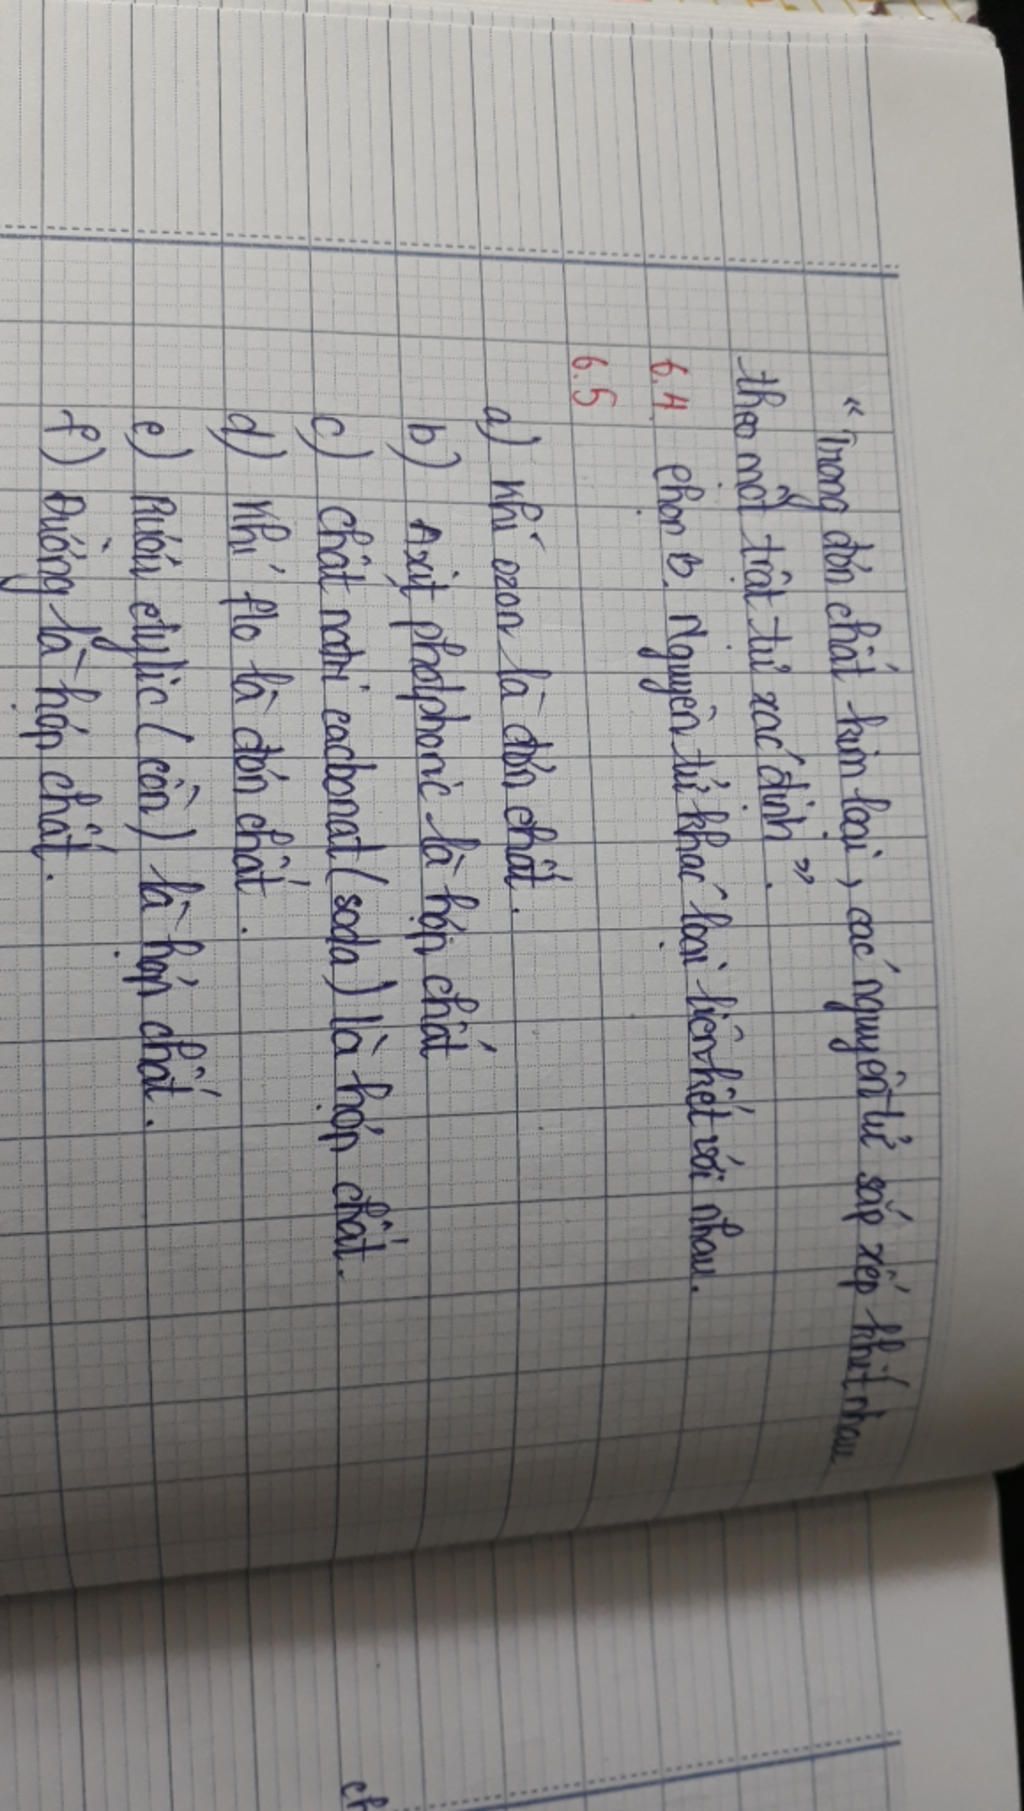 “Trong đơn chất kim loại, các nguyên tử sắp xếp khít nhau
theo một trật tự xác định”.
6.4 chọn B. Nguyên tử khác loại liên kết với nhau.
6.5
a) Khí ozon là đơn chất.
b) Axit photphoric là hợp chất
c) Chất natri cacbonat (soda) là hợp chất.
d) Khí flo là đơn chất.
e) Rượu etylic (cồn) là hợp chất.
f) Đường là hợp chất.
ch